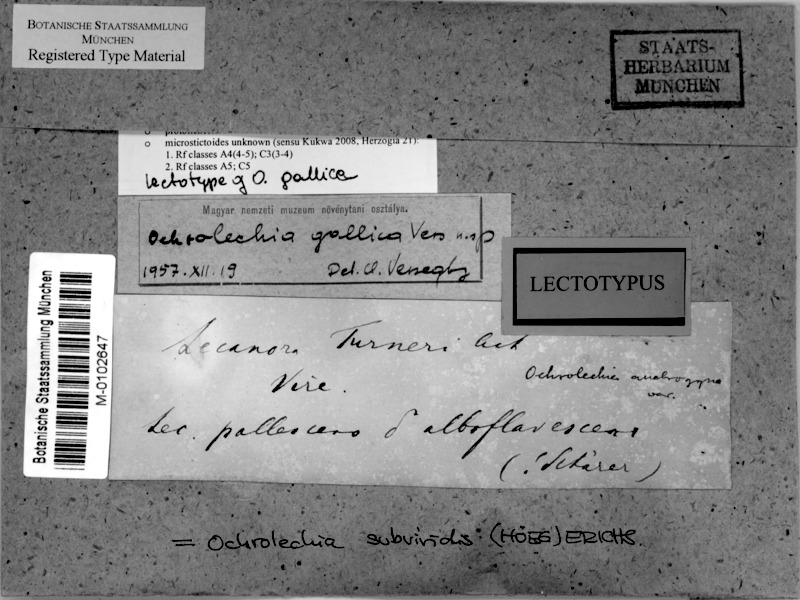 BOTANISCHE STAATSSAMMLUNG
MÜNCHEN
Registered Type Material
STAATS-
HERBARIUM
MÜNCHEN
o microstictoides unknown (sensu Kukwa 2008, Herzogia 21):
1. Rf classes A4(4-5); C3(3-4)
2. Rf classes A5; C5
lectotype of O. gallica
Magyar nemzeti muzeum növénytani osztálya.
Ochrolechia gallica Vers n.sp
1957.XII.19 Det. Cl. Verseghy
LECTOTYPUS
Botanische Staatssammlung München
M-0102647
Lecanora Turneri Ach
Vire.
Ochrolechia androgyna
var.
Lec. pallescens δ alboflavescens
(! Schärer)
= Ochrolechia subviridis (HÖEG) ERICHS.